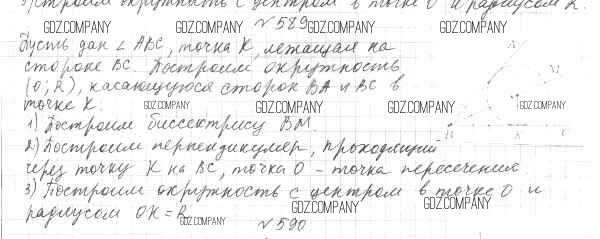 3) Построим окружность с центром в точке O и радиусом R.
GDZ.COMPANY GDZ.COMPANY GDZ.COMPANY GDZ.COMPANY
№589
Пусть дан ∠ ABC, точка K, лежащая на
стороне BC. Построим окружность
(O; R), касающуюся сторон BA и BC в
точке K.
GDZ.COMPANY GDZ.COMPANY GDZ.COMPANY GDZ.COMPANY
1) Построим биссектрису BM.
2) Построим перпендикуляр, проходящий
через точку K на BC, точка O - точка пересечения.
3) Построим окружность с центром в точке O и
радиусом OK = R.
GDZ.COMPANY GDZ.COMPANY GDZ.COMPANY
№590
A
M
B
K
C